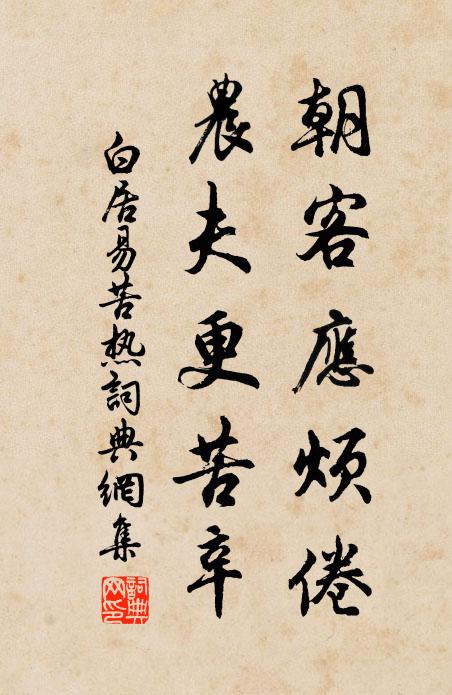 朝客應煩倦
農夫更苦辛
白居易苦热詞典網集
詞典网印